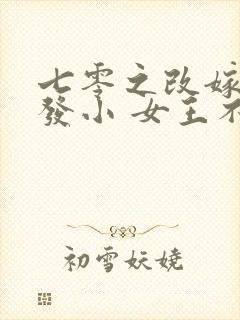 七零之改嫁
發小 女主不
初雪妖嬈